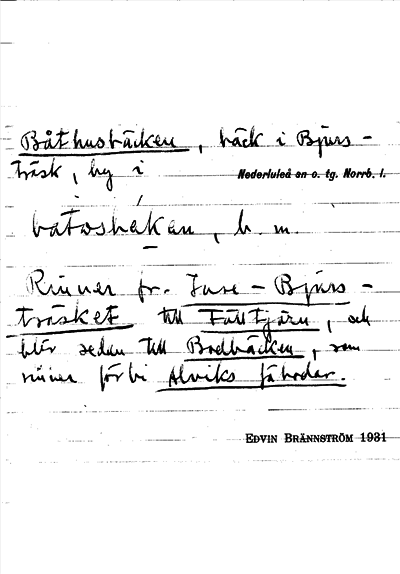 Båthusbäcken, bäck i Bjurs-
träsk, by i
Nederluleå sn o. tg. Norrb. l.
b. m.
Rinner fr. Inre-Bjurs-
träsket till Fälltjärn, och
blir sedan till Brobäcken, som
rinner förbi Alviks fäbodar.
EDVIN BRÄNNSTRÖM 1931